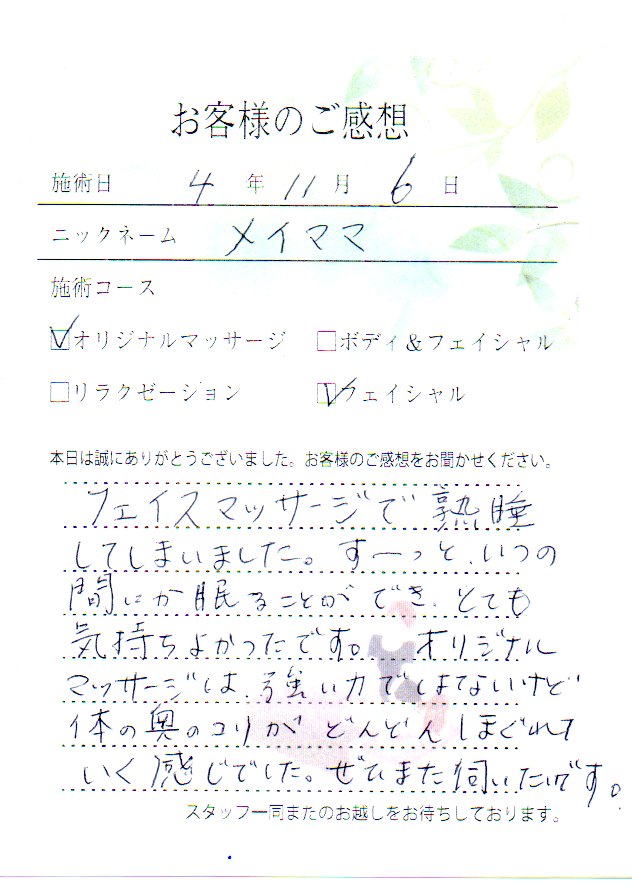 お客様のご感想
施術日 4 年 11 月 6 日
ニックネーム メイママ
施術コース
☑オリジナルマッサージ □ボディ&フェイシャル
□リラクゼーション ☑フェイシャル
本日は誠にありがとうございました。お客様のご感想をお聞かせください。
フェイスマッサージで熟睡
してしまいました。すーっと、いつの
間にか眠ることができ、とても
気持ちよかったです。オリジナル
マッサージは、強い力ではないけど
体の奥のコリがどんどんほぐれて
いく感じでした。ぜひまた伺いたいです。
スタッフ一同またのお越しをお待ちしております。